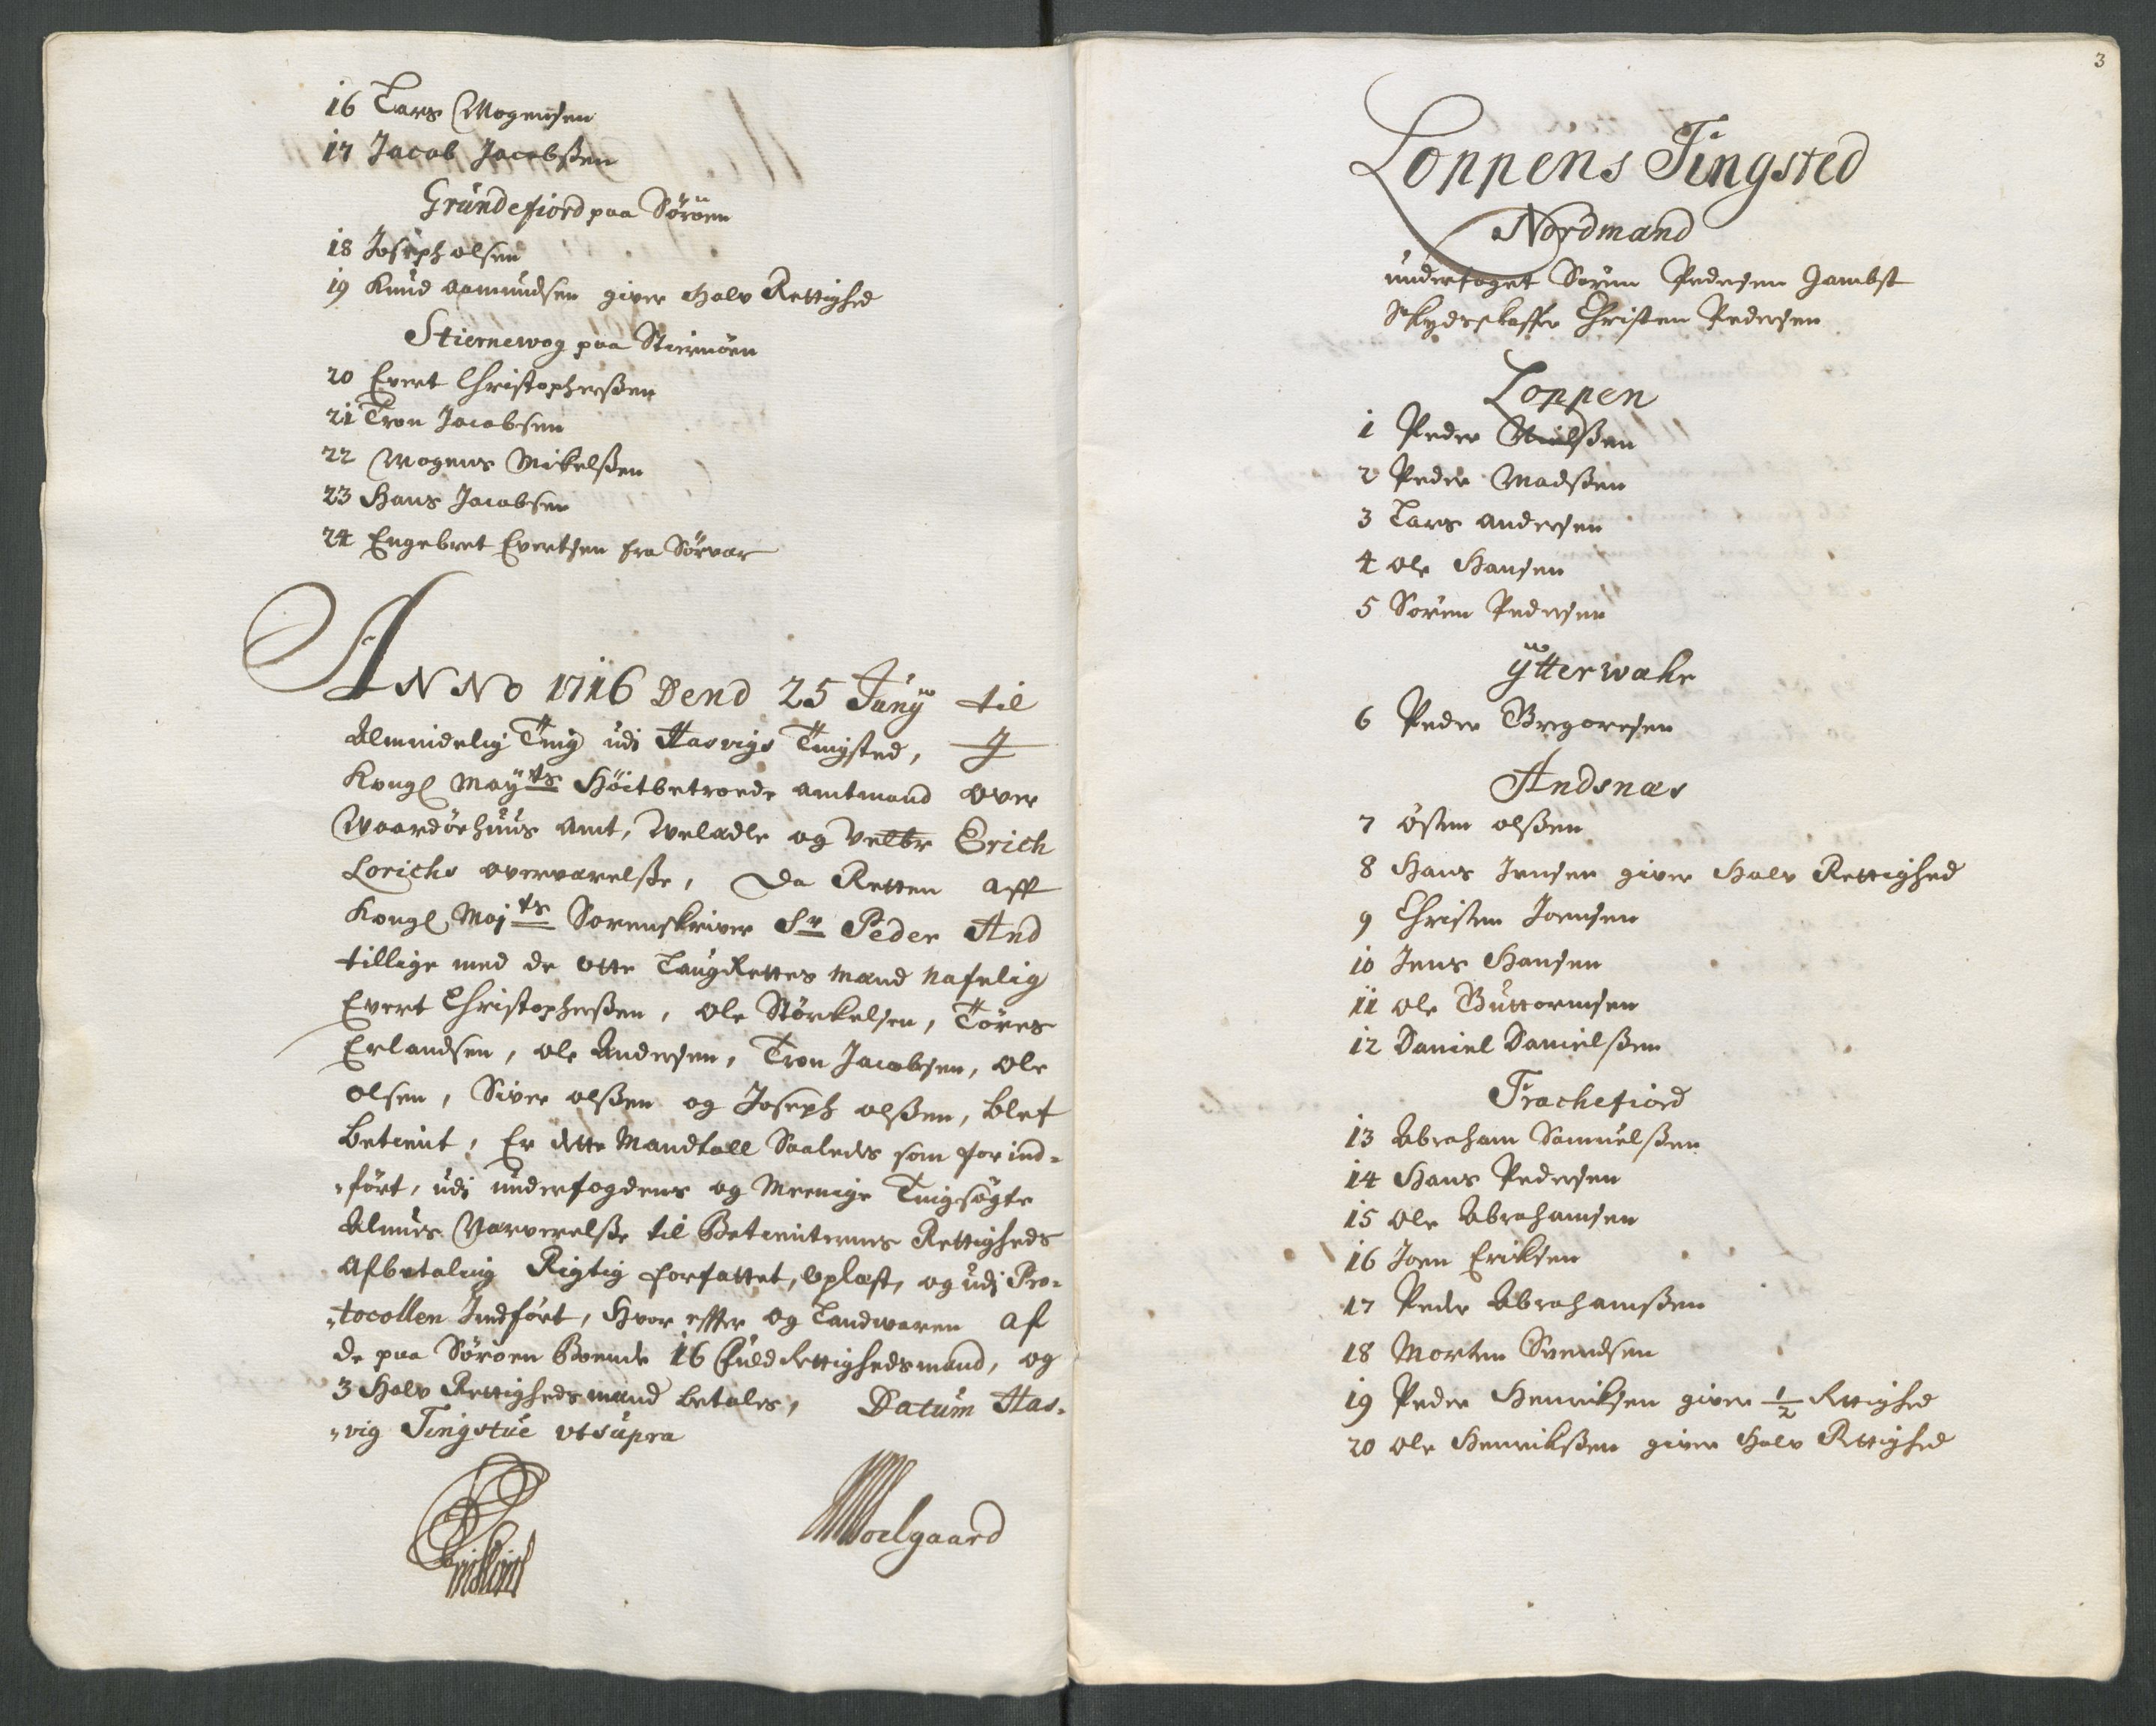 16 Lars Mogensen
17 Jacob Jacobßen
Grundefiord paa Söröen
18 Joseph olsen
19 Knud Aamundsen giver Halv Rettighed
Stiernewog paa Stiernöen
20 Evert Christopherßen
21 Tron Jacobsen
22 Mogens Mikelßen
23 Hans Jacobsen
24 Engebret Evertsen fra Sörvær
ANNO 1716 Dend 25 Juny til
Almindelig Ting udi Hasvigs Tingsted, J
Kongl May.ts Höitbetroede Amtmand over
Waardöehuus Amt, Weladle og Velbr Erich
Lorichs overværelße, Da Retten aff
Kongl Maj.ts Sorenskriver Sr Peder And
tillige med de Otte Laugrettes Mænd Nafnlig
Evert Christopherßen, Ole Störkelsen, Töres
Erlandsen, Ole Andersen, Tron Jacobsen, Ole
Olsen, Siver olßen og Joseph olßen, blef
betient, Er dette Mandtall Saaledes som for ind-
fört, udi underfogdens og Meenige Tingsögte
Almues Nærverelße til Betienternes Rettigheds
Afbetaling Rigtig forfattet, oplæst, og udj Pro-
tocollen Jndfört, Hvor effter og Landwaren af
de paa Söröen Boende 16 Fuld Rettighedsmænd, og
3 Halv Rettigheds mænd betales, Datum Has-
vig Tingstue ut supra
Erich Lorich
Soelgaard
3
Loppens Tingsted
Nordmænd
underfoget Sören Pedersen Gambst
Skydsskaffer Christen Pedersen
Loppen
1 Peder Nielßen
2 Peder Madßen
3 Lars Andersen
4 Ole Hansen
5 Sören Pedersen
ytterwæhr
6 Peder Gregoresen
Andsnæs
7 östen olßen
8 Hans Jensen giver Halv Rettighed
9 Christen Joensen
10 Jens Hansen
11 Ole Guttormsen
12 Daniel Danielßen
Frachefiord
13 Abraham Samuelßen
14 Hans Pedersen
15 Ole Abrahamsen
16 Joen Eriksen
17 Peder Abrahamßen
18 Morten Svendsen
19 Peder Henriksen giver 1/2 Rettighed
20 Ole Henrikßen giver Halv Rettighed